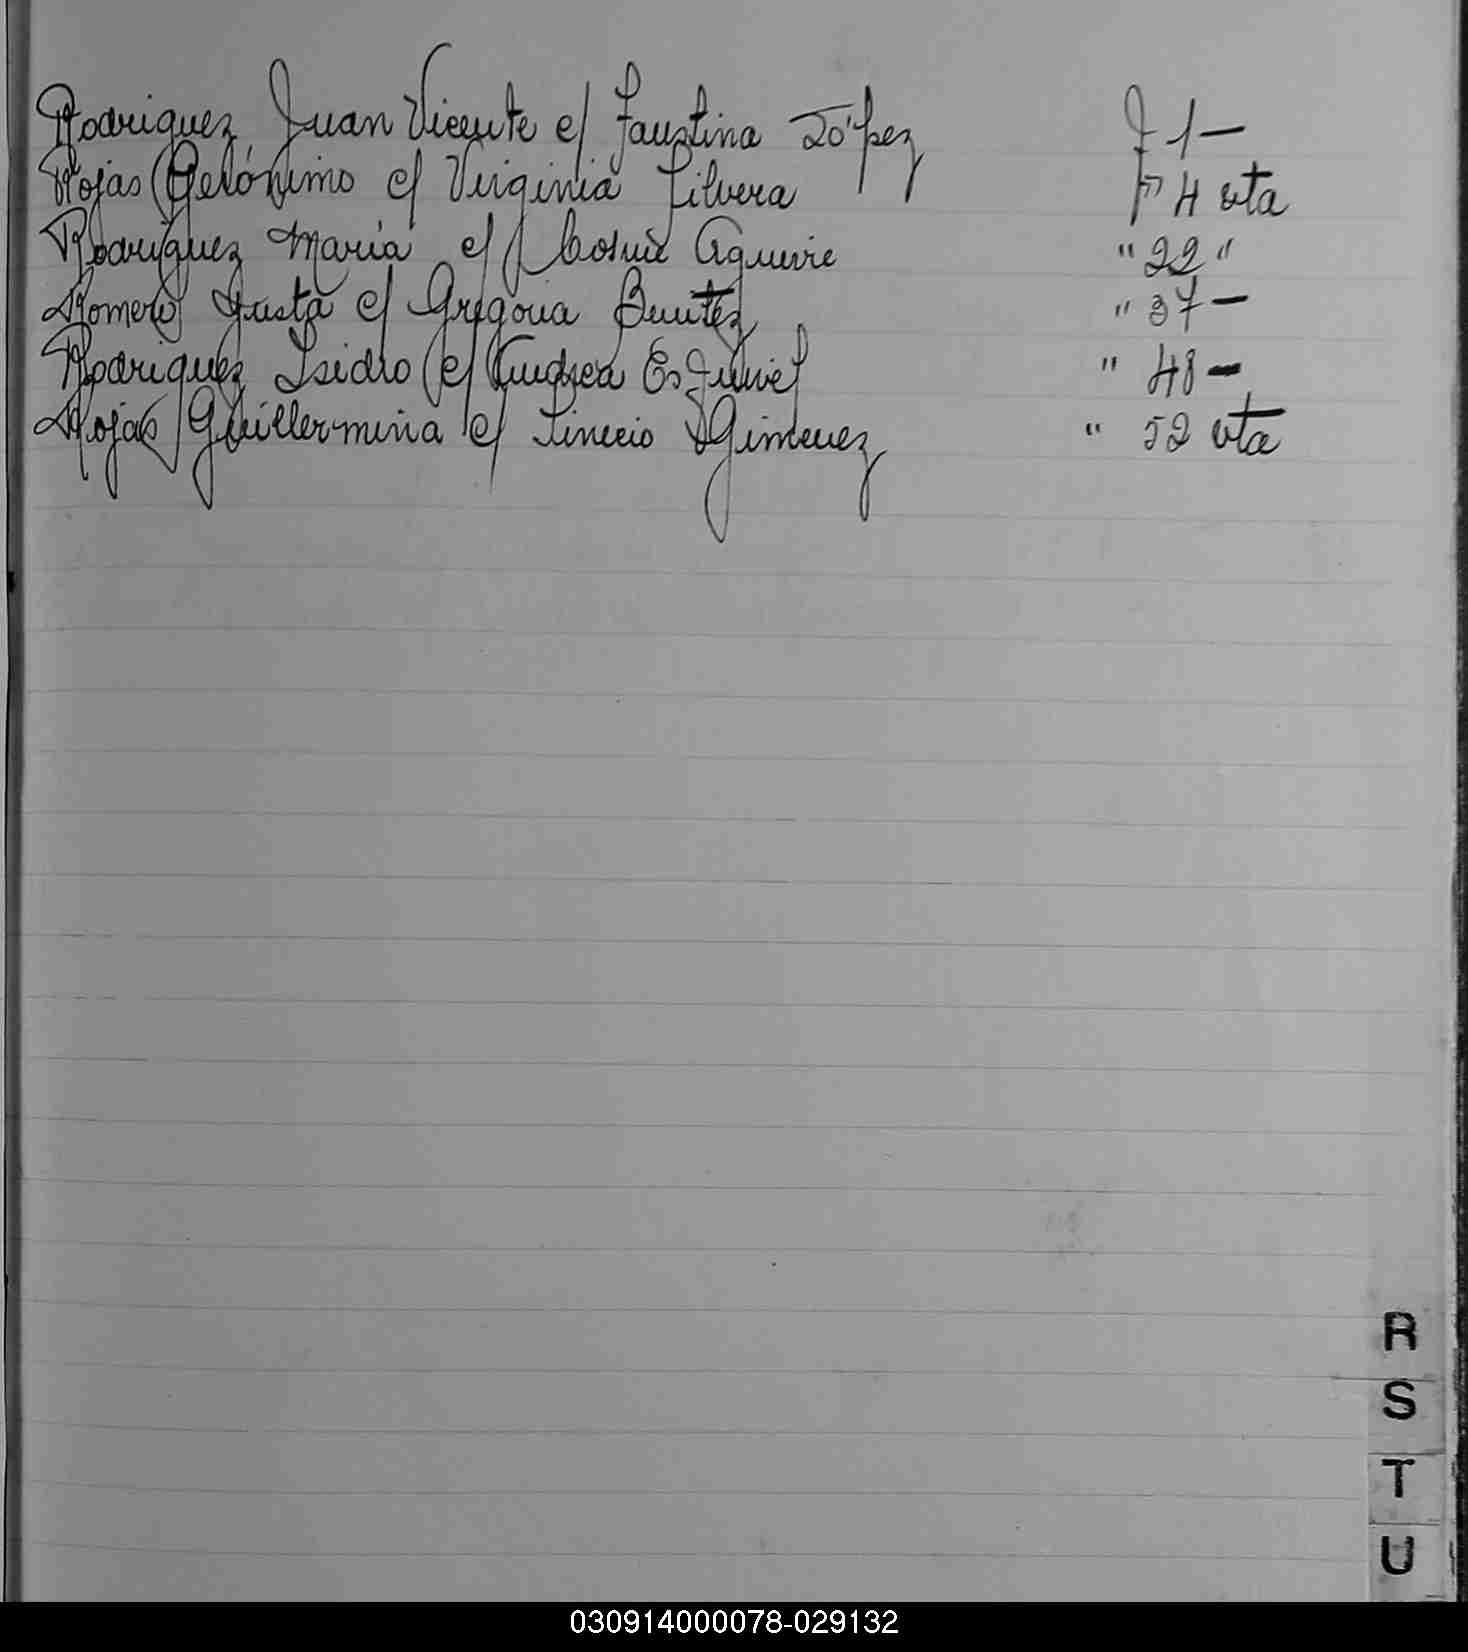 Rodriguez Juan Vicente c/ Faustina López F 1 —
Rojas Gerónimo c/ Virginia Silvera F 4 vta
Rodriguez María c/ Cosme Aguirre " 22 "
Romero Justa c/ Gregoria Benitez " 37 —
Rodriguez Isidro c/ Andrea Esquivel " 48 —
Rojas Guillermina c/ Gimenez " 52 vta
R
S
T
U
030914000078-029132